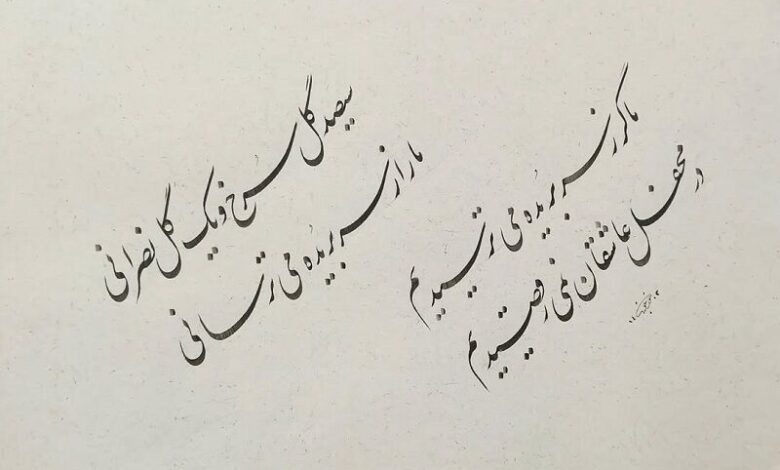 سیصد گل سرخ و یک گل نصرانی
ما را ز سر بریده می ترسانی
ما گر ز سر بریده می ترسیدیم
در محفل عاشقان نمی رقصیدیم